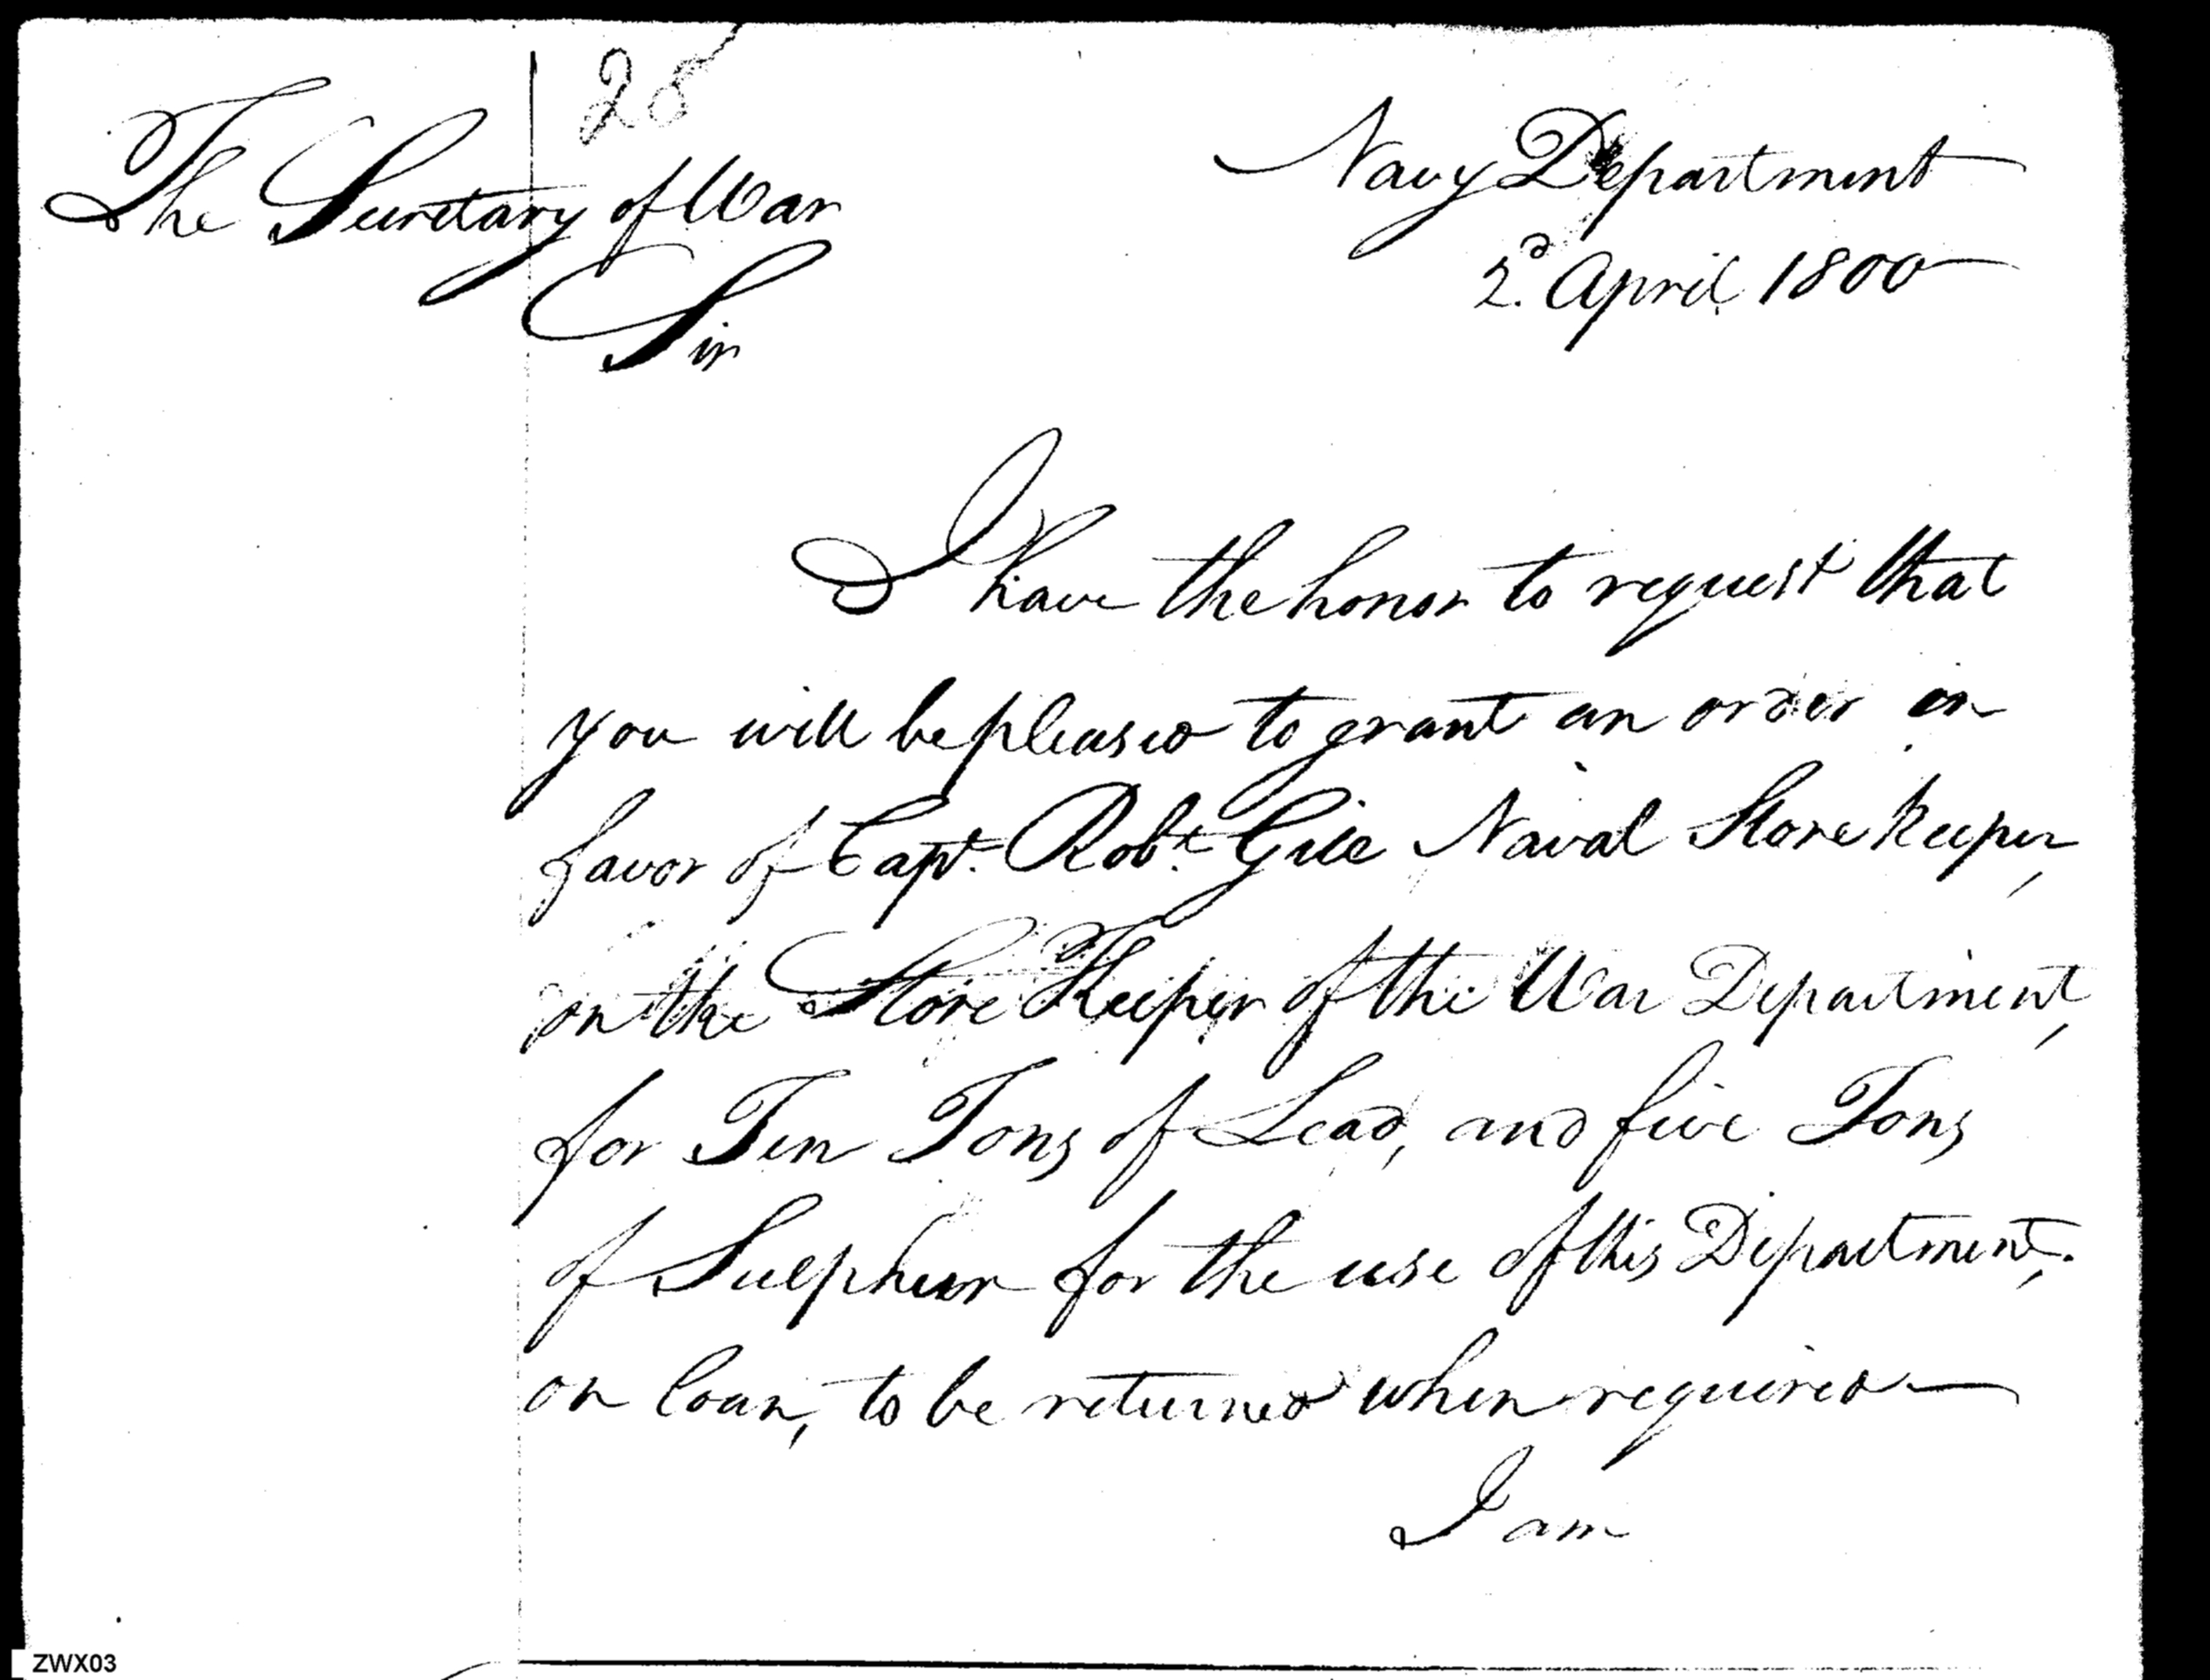 28
The Secretary of War
Navy Department
2d. April 1800
Sir
I have the honor to request that
you will be pleased to grant an order in
favor of Capt. Robt. Gill Naval Store keeper,
on the Store Keeper of the War Department,
for Ten Tons of Lead, and five Tons
of Sulpheur for the use of this Department,
on loan, to be returned when required—
I am
ZWX03